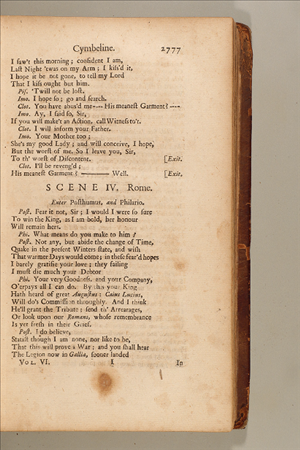 Cymbeline. 2777
I saw't this morning; confident I am,
Last Night 'twas on my Arm; I kiss'd it,
I hope it be not gone, to tell my Lord
That I kiss ought but him.
Pis. 'Twill not be lost.
Imo. I hope so; go and search.
Clot. You have abus'd me---- His meanest Garment! ----
Imo. Ay, I said so, Sir,
If you will make't an Action, call Witness to't.
Clot. I will inform your Father.
Imo. Your Mother too;
She's my good Lady; and will conceive, I hope,
But the worst of me. So I leave you, Sir,
To th' worst of Discontent. [Exit.
Clot. I'll be reveng'd;
His meanest Garment! ——— Well. [Exit.
SCENE IV. Rome.
Enter Posthumus, and Philario.
Post. Fear it not, Sir; I would I were so sure
To win the King, as I am bold, her honour
Will remain hers.
Phi. What means do you make to him?
Post. Not any, but abide the change of Time,
Quake in the present Winters state, and wish
That warmer Days would come; in these fear'd hopes
I barely gratifie your love; they failing
I must die much your Debtor.
Phi. Your very Goodness, and your Company,
O'erpays all I can do. By this your King
Hath heard of great Augustus; Caius Lucius,
Will do's Commission throughly. And I think
He'll grant the Tribute; send th' Arrearages,
Or look upon our Romans, whose remembrance
Is yet fresh in their Grief.
Post. I do believe,
Statist though I am none, nor like to be,
That this will prove a War; and you shall hear
The Legion now in Gallia, sooner landed
VOL. VI. I In